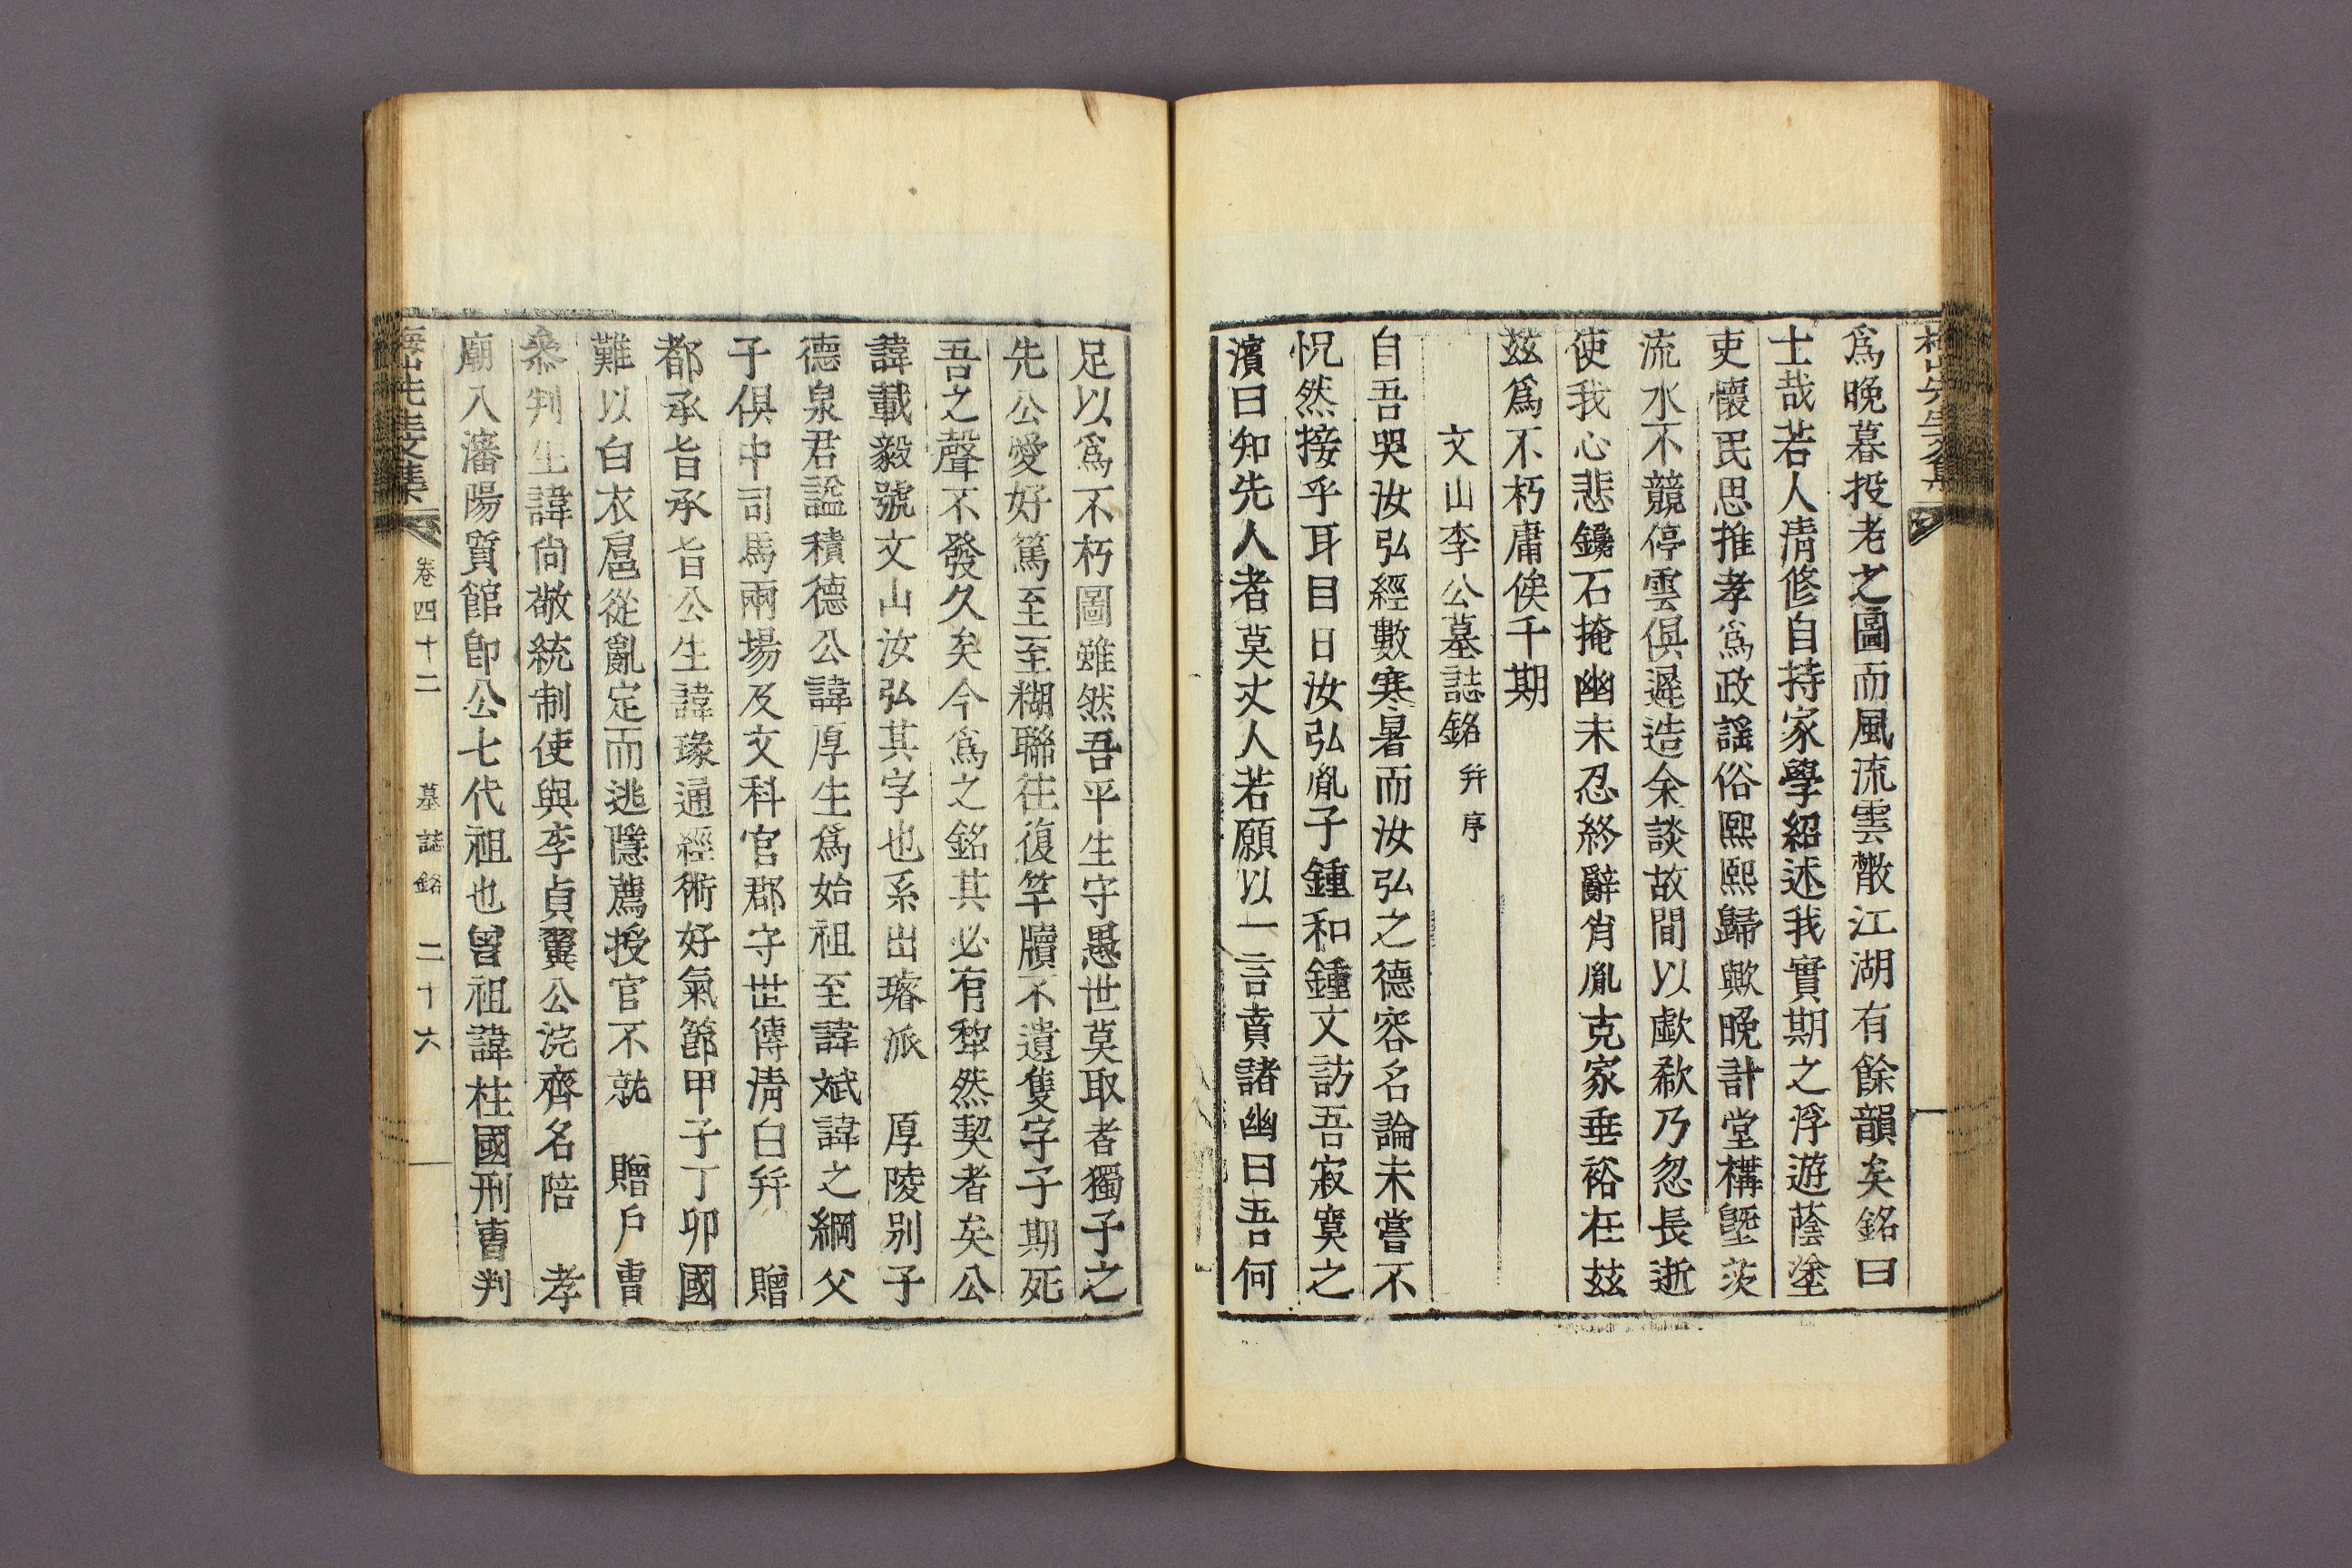 爲晚暮投老之圖而風流雲散江湖有餘韻矣銘曰
士哉若人淸修自持家學紹述我實期之浮遊蔭塗
吏懷民思推孝爲政謠俗熙熙歸歟晚計堂構墍茨
流水不競停雲俱遲造余談故間以歔欷乃忽長逝
使我心悲鑱石掩幽未忍終辭肖胤克家垂裕在玆
玆爲不朽庸俟千期
文山李公墓誌銘 幷序
自吾哭汝弘經數寒暑而汝弘之德容名論未嘗不
怳然接乎耳目日汝弘胤子鍾和鍾文訪吾寂寞之
濱曰知先人者莫丈人若願以一言賁諸幽曰吾何
足以爲不朽圖雖然吾平生守愚世莫取者獨子之
先公愛好篤至至糊聯往復竿牘不遺隻字子期死
吾之聲不發久矣今爲之銘其必有犂然契者矣公
諱載毅號文山汝弘其字也系出璿派 厚陵別子
德泉君諡積德公諱厚生爲始祖至諱斌諱之綱父
子俱中司馬兩場及文科官郡守世傳淸白幷 贈
都承旨承旨公生諱瑑通經術好氣節甲子丁卯國
難以白衣扈從亂定而逃隱薦授官不就 贈戶曹
叅判生諱尙敬統制使與李貞翼公浣齊名陪 孝
廟入瀋陽質館卽公七代祖也曾祖諱柱國刑曹判
梅山先生文集 卷四十二 墓誌銘 二十六